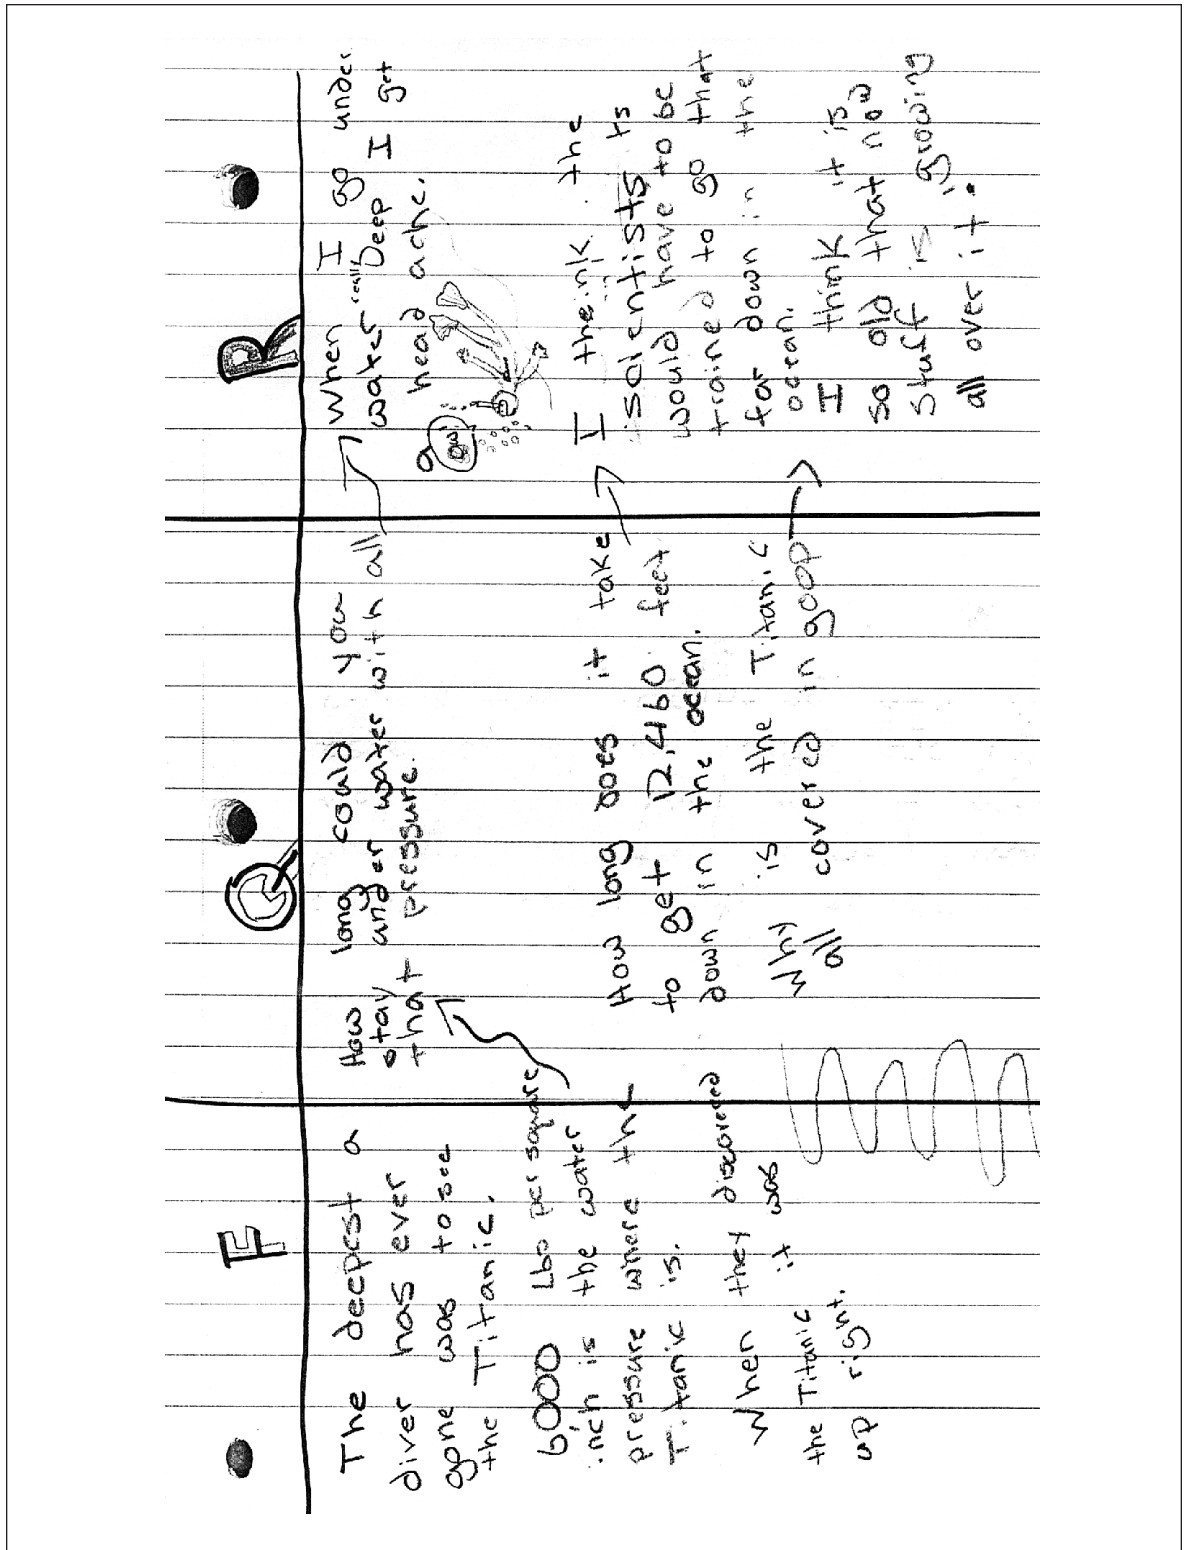 F
The deepest a
diver has ever
gone was to see
the Titanic.
6000 Lbs per square
inch is the water
pressure where the
Titanic is.
When they discovered
the Titanic it was
up right.
Q
How long could you
stay under water with all
that pressure.
How long does it take
to get 12,460 feet
down in the ocean.
Why is the Titanic
all covered in goop
R
When I go under
water really Deep I get
head ache.
ow
I theink the
scientists
would have to be
trained to go that
far down in the
ocean.
I think it is
so old that now
stuf is growing
all over it.